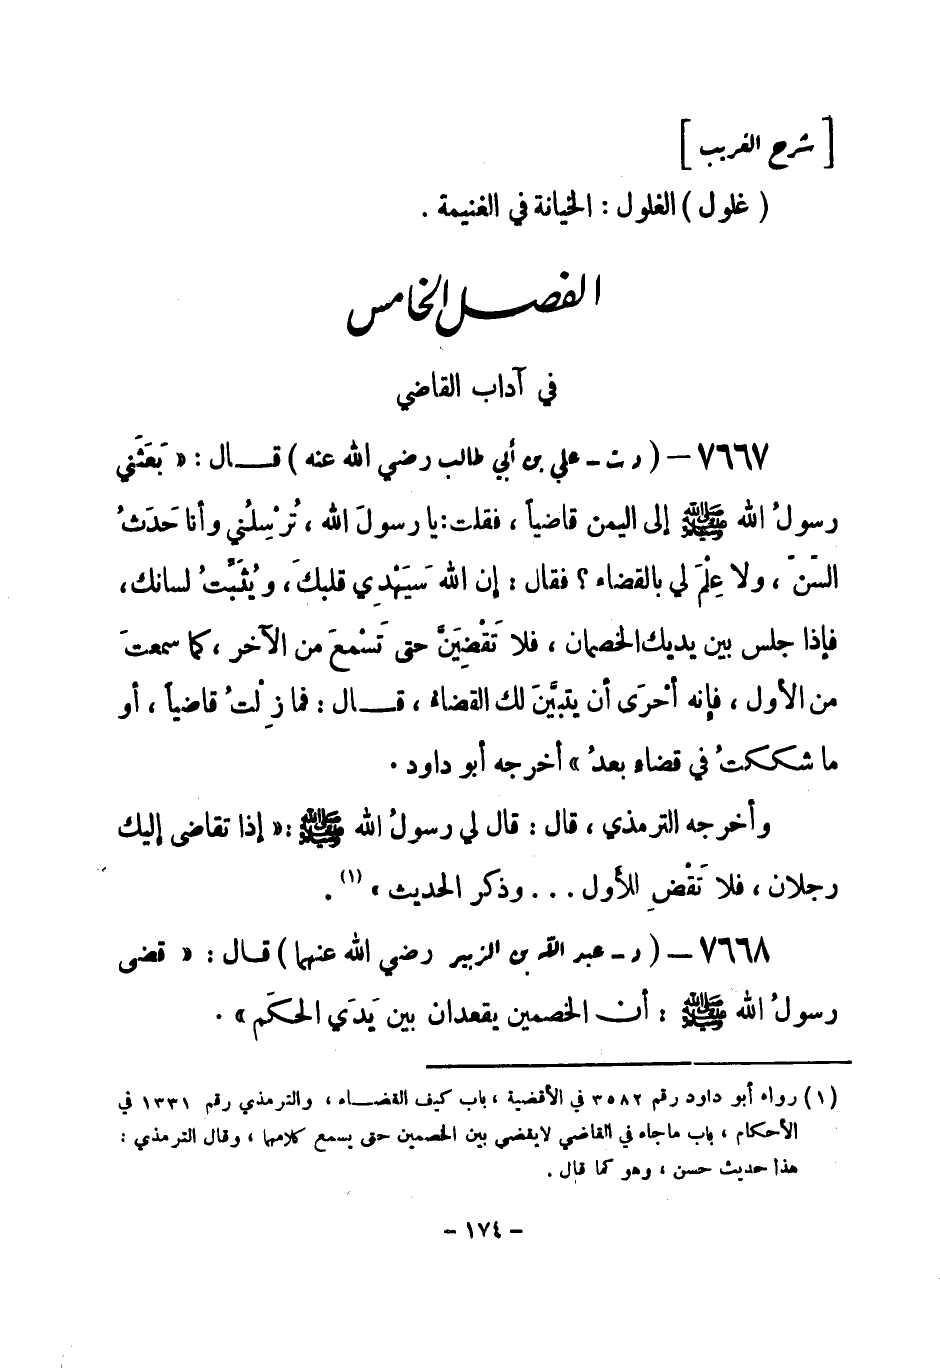 [ شرح الغريب ]
( غلول ) الغلول : الخيانة في الغنيمة .
الفصل الخامس
في آداب القاضي
٧٦٦٧ – ( د ت - علي بن أبي طالب رضي الله عنه ) قـــال : « بَعَثَني
رسولُ الله ﷺ إلى اليمن قاضياً ، فقلت : يا رسولَ الله ، تُرْسِلُني وأنا حَدَثُ
السِّنّ ، ولا عِلْمَ لي بالقضاء ؟ فقال : إن الله سَيَهْدِي قلبكَ ، ويُثَبِّتُ لسانك ،
فإذا جلس بين يديك الخصمان ، فلا تَقْضِيَنَّ حتى تَسْمعَ من الآخر ، كما سمعتَ
من الأول ، فإنه أحْرَى أن يتبيَّنَ لك القضاءُ ، قـــال : فما زِلْتُ قاضياً ، أو
ما شككتُ في قضاء بعدُ » أخرجه أبو داود .
وأخرجه الترمذي ، قال : قال لي رسولُ الله ﷺ : « إذا تقاضى إليك
رجلان ، فلا تَقْضِ للأول . . . وذكر الحديث » (١) .
٧٦٦٨ – ( د - عبد الله بن الزبير رضي الله عنهما ) قــال : « قضى
رسولُ الله ﷺ : أن الخصمين يقعدان بين يَدَي الحكَم » .
(١) رواه أبو داود رقم ٣٥٨٢ في الأقضية ، باب كيف القضـــاء ، والترمذي رقم ١٣٣١ في
الأحكام ، باب ماجاء في القاضي لايقضي بين الخصمين حتى يسمع كلامهما ، وقال الترمذي :
هذا حديث حسن ، وهو كما قال .
- ١٧٤ -